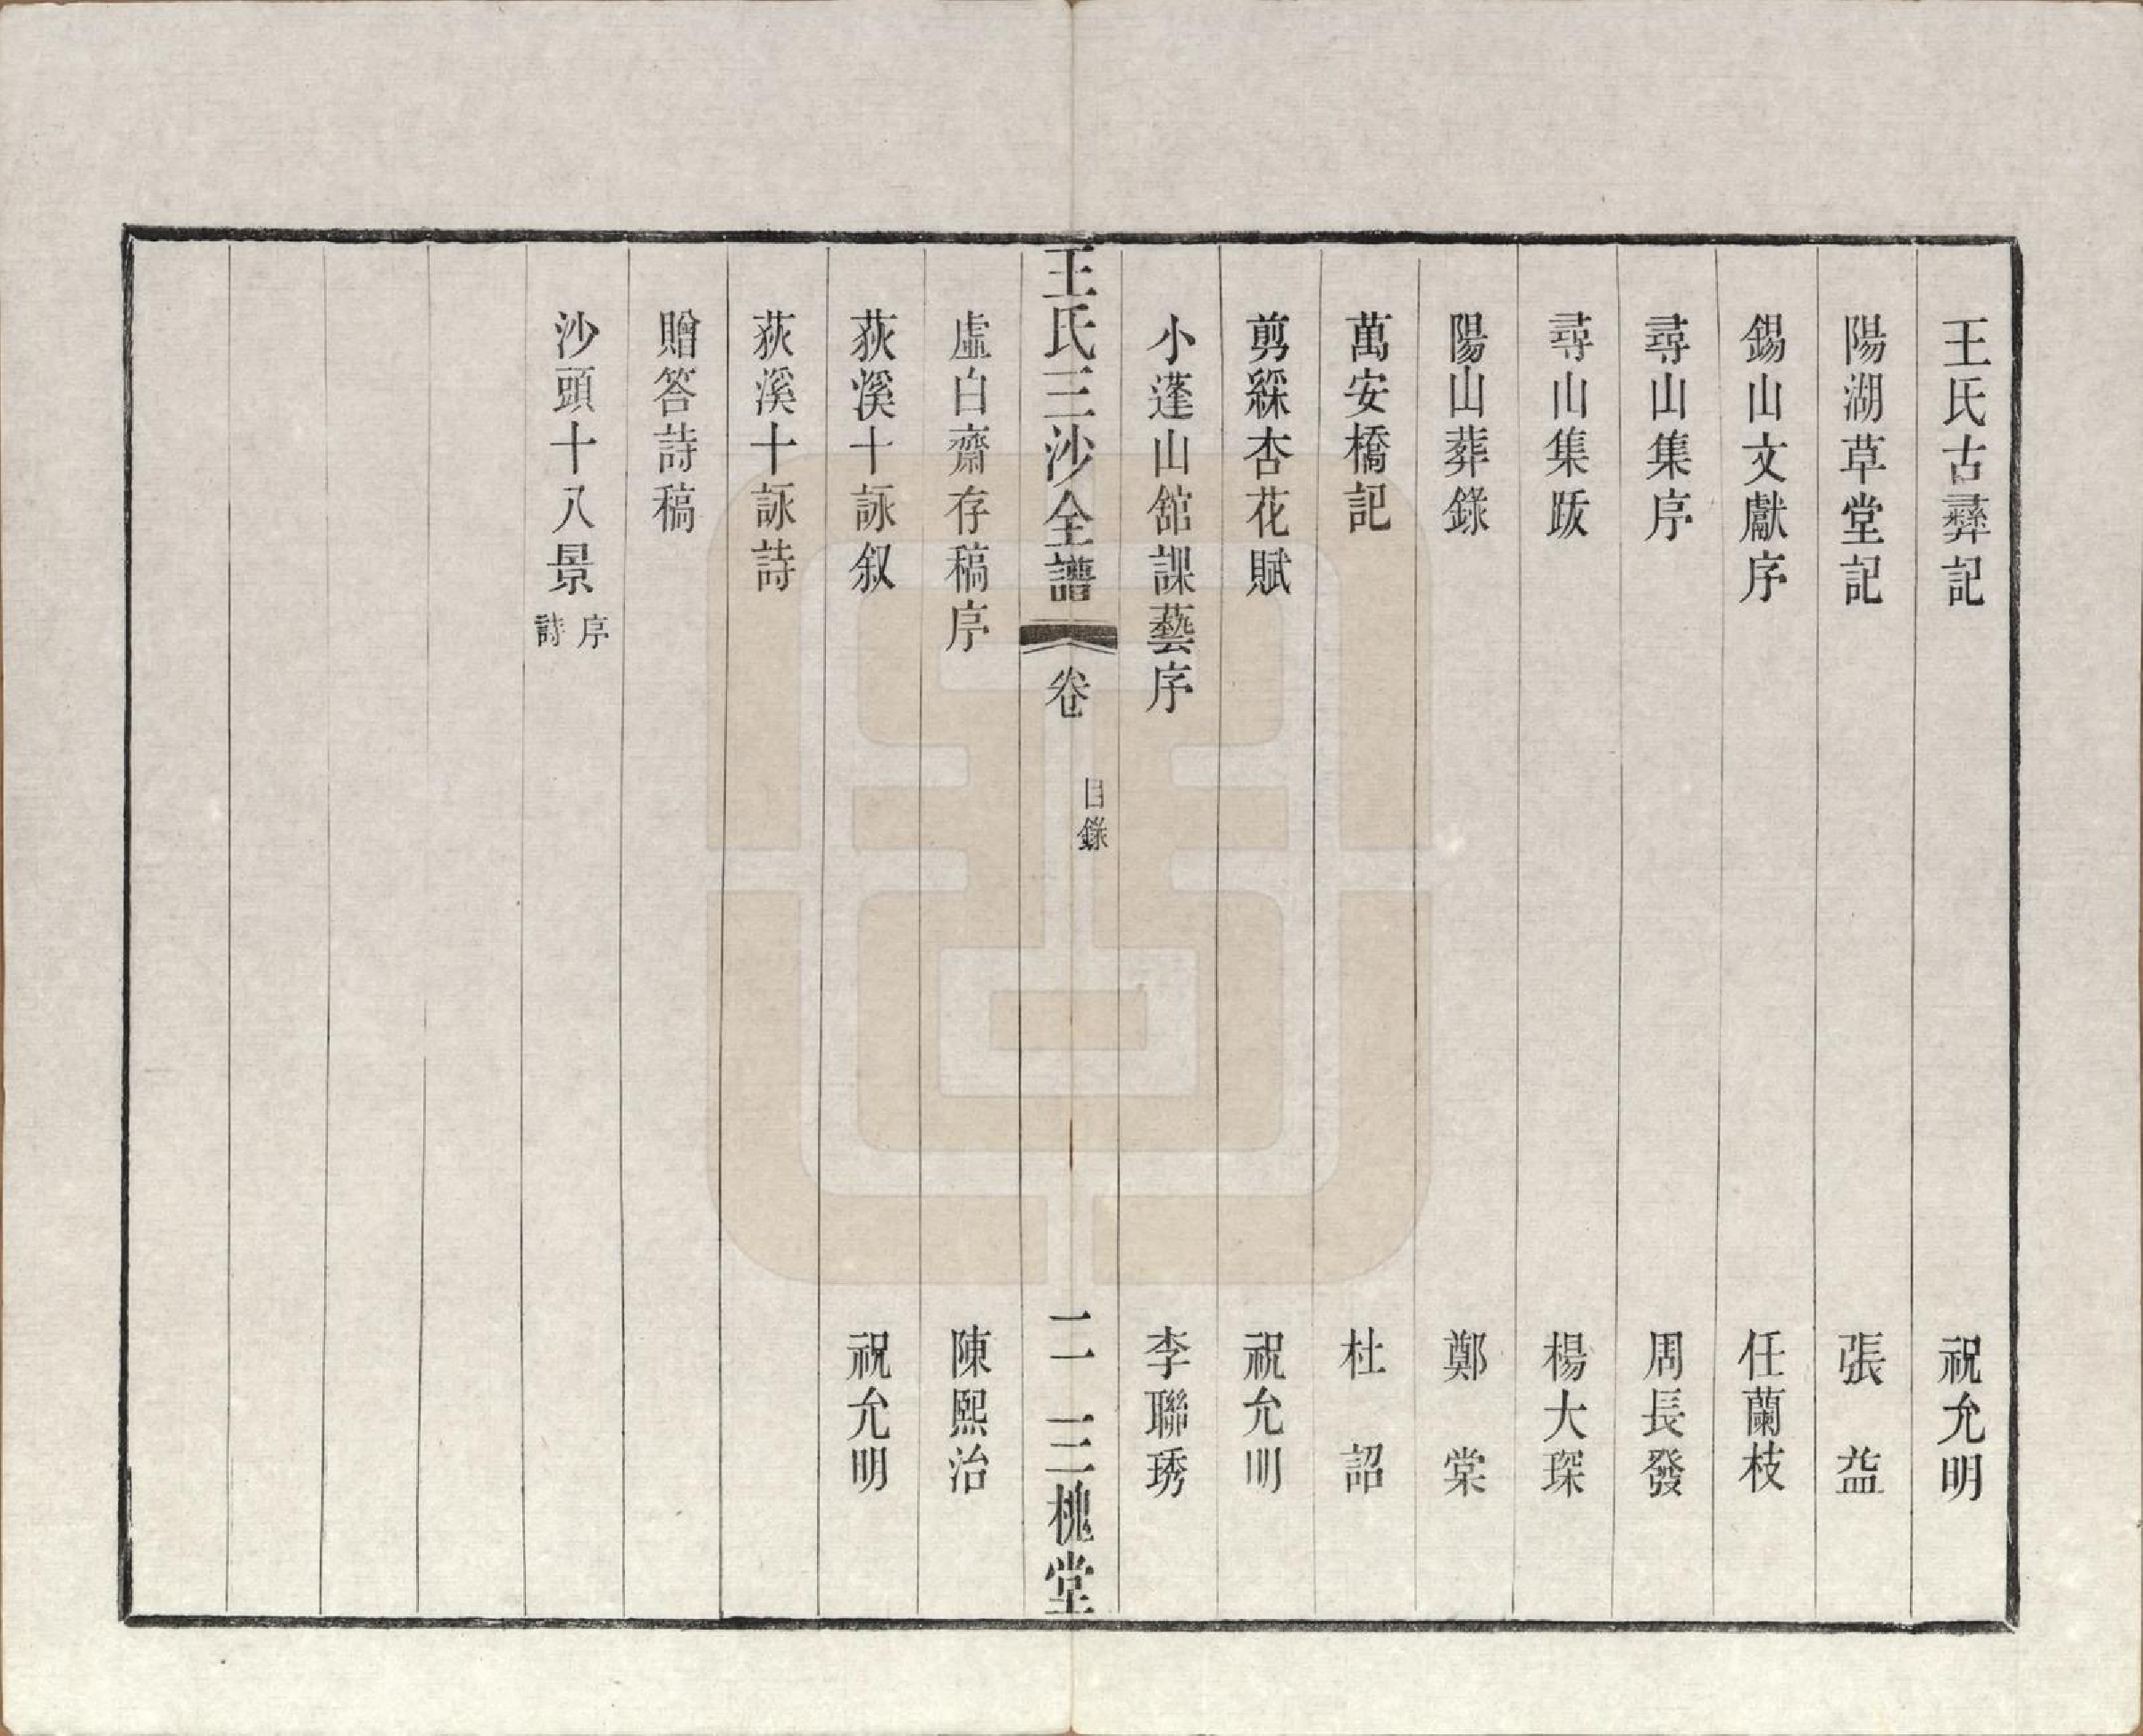 王氏古彞記　祝允明
陽湖草堂記　張　益
錫山文獻序　任蘭枝
尋山集序　周長發
尋山集跋　楊大琛
陽山葬錄　鄭　棠
萬安橋記　杜　詔
剪綵杏花賦　祝允明
小蓬山舘課藝序　李聯琇
王氏三沙全譜　卷　目錄　二　三槐堂
虛白齋存稿序　陳熙治
荻溪十詠叙　祝允明
荻溪十詠詩
贈答詩稿
沙頭十八景序詩